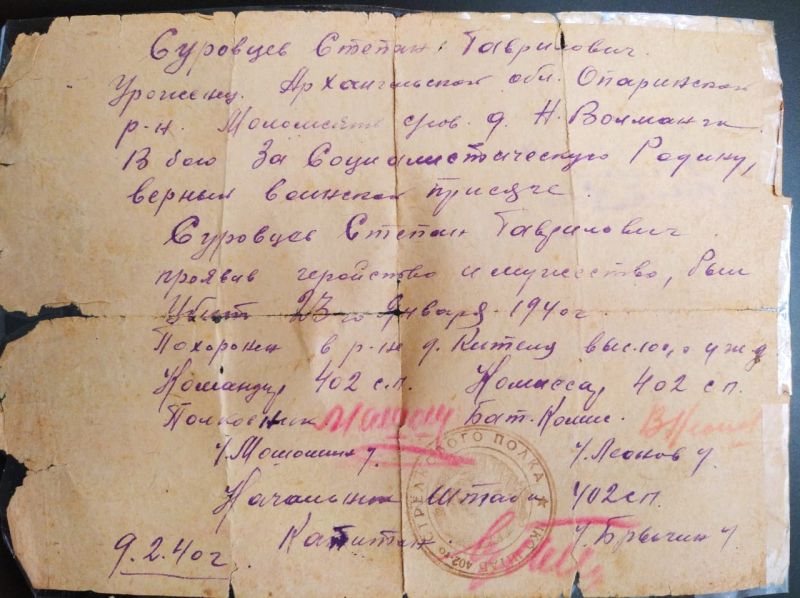 Суровцев Степан Гаврилович.
Уроженец Архангельской обл. Опаринской
р-н. д. Н. Волманга
В бою За Социалистическую Родину,
верный воинской присяге.
Суровцев Степан Гаврилович
проявив геройство и мужество, был
Убит 23го Января 1940г
Похоронен в р-не д. Кителя
Командир 402 с.п. Комиссар 402 сп.
Полковник Бат. Комис.
/Мошошин/ /Леонов/
Начальник Штаба 402сп.
Капитан /Брычин/
9.2.40г
СТРЕЛКОВОГО ПОЛКА ★ ШТАБ 402 го